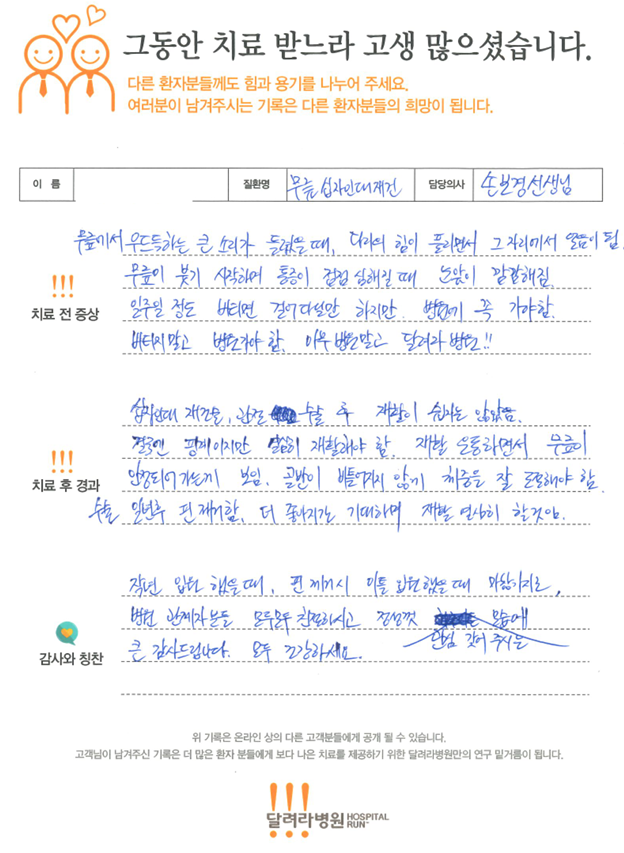 그동안 치료 받느라 고생 많으셨습니다.
다른 환자분들께도 힘과 용기를 나누어 주세요.
여러분이 남겨주시는 기록은 다른 환자분들의 희망이 됩니다.
이 름 질환명 무릎 십자인대재건 담당의사 손보경선생님
무릎에서 우드득하는 큰 소리가 들렸을때, 다리의 힘이 풀리면서 그 자리에서 얼음이 됨.
무릎이 붓기 시작하며 통증이 점점 심해질 때 눈앞이 깜깜해짐.
치료 전 증상
일주일 정도 버티면 걸어다닐만 하지만 병원에 꼭 가야함.
버티지말고 병원가야 함. 아무 병원말고 달려라 병원!!
십자인대 재건술, 수술 후 재활이 쉽지는 않았음.
평생이지만 열심히 재활해야 함. 재활 운동하면서 무릎이
치료 후 경과
안정되어가는게 보임. 골반이 비틀어지지 않게 체중을 잘 조절해야 함.
수술 일년후 핀 제거함. 더 좋아지길 기대하며 재활 열심히 할것임.
작년 입원 했을때, 핀 제거시 이틀 입원했을때 마찬가지로,
병원 관계자분들 모두모두 친절하시고 정성껏 모습에
안심 갖게 주시는
감사와 칭찬
큰 감사드립니다. 모두 건강하세요.
위 기록은 온라인 상의 다른 고객분들에게 공개 될 수 있습니다.
고객님이 남겨주신 기록은 더 많은 환자 분들에게 보다 나은 치료를 제공하기 위한 달려라병원만의 연구 밑거름이 됩니다.
달려라병원 HOSPITAL RUN